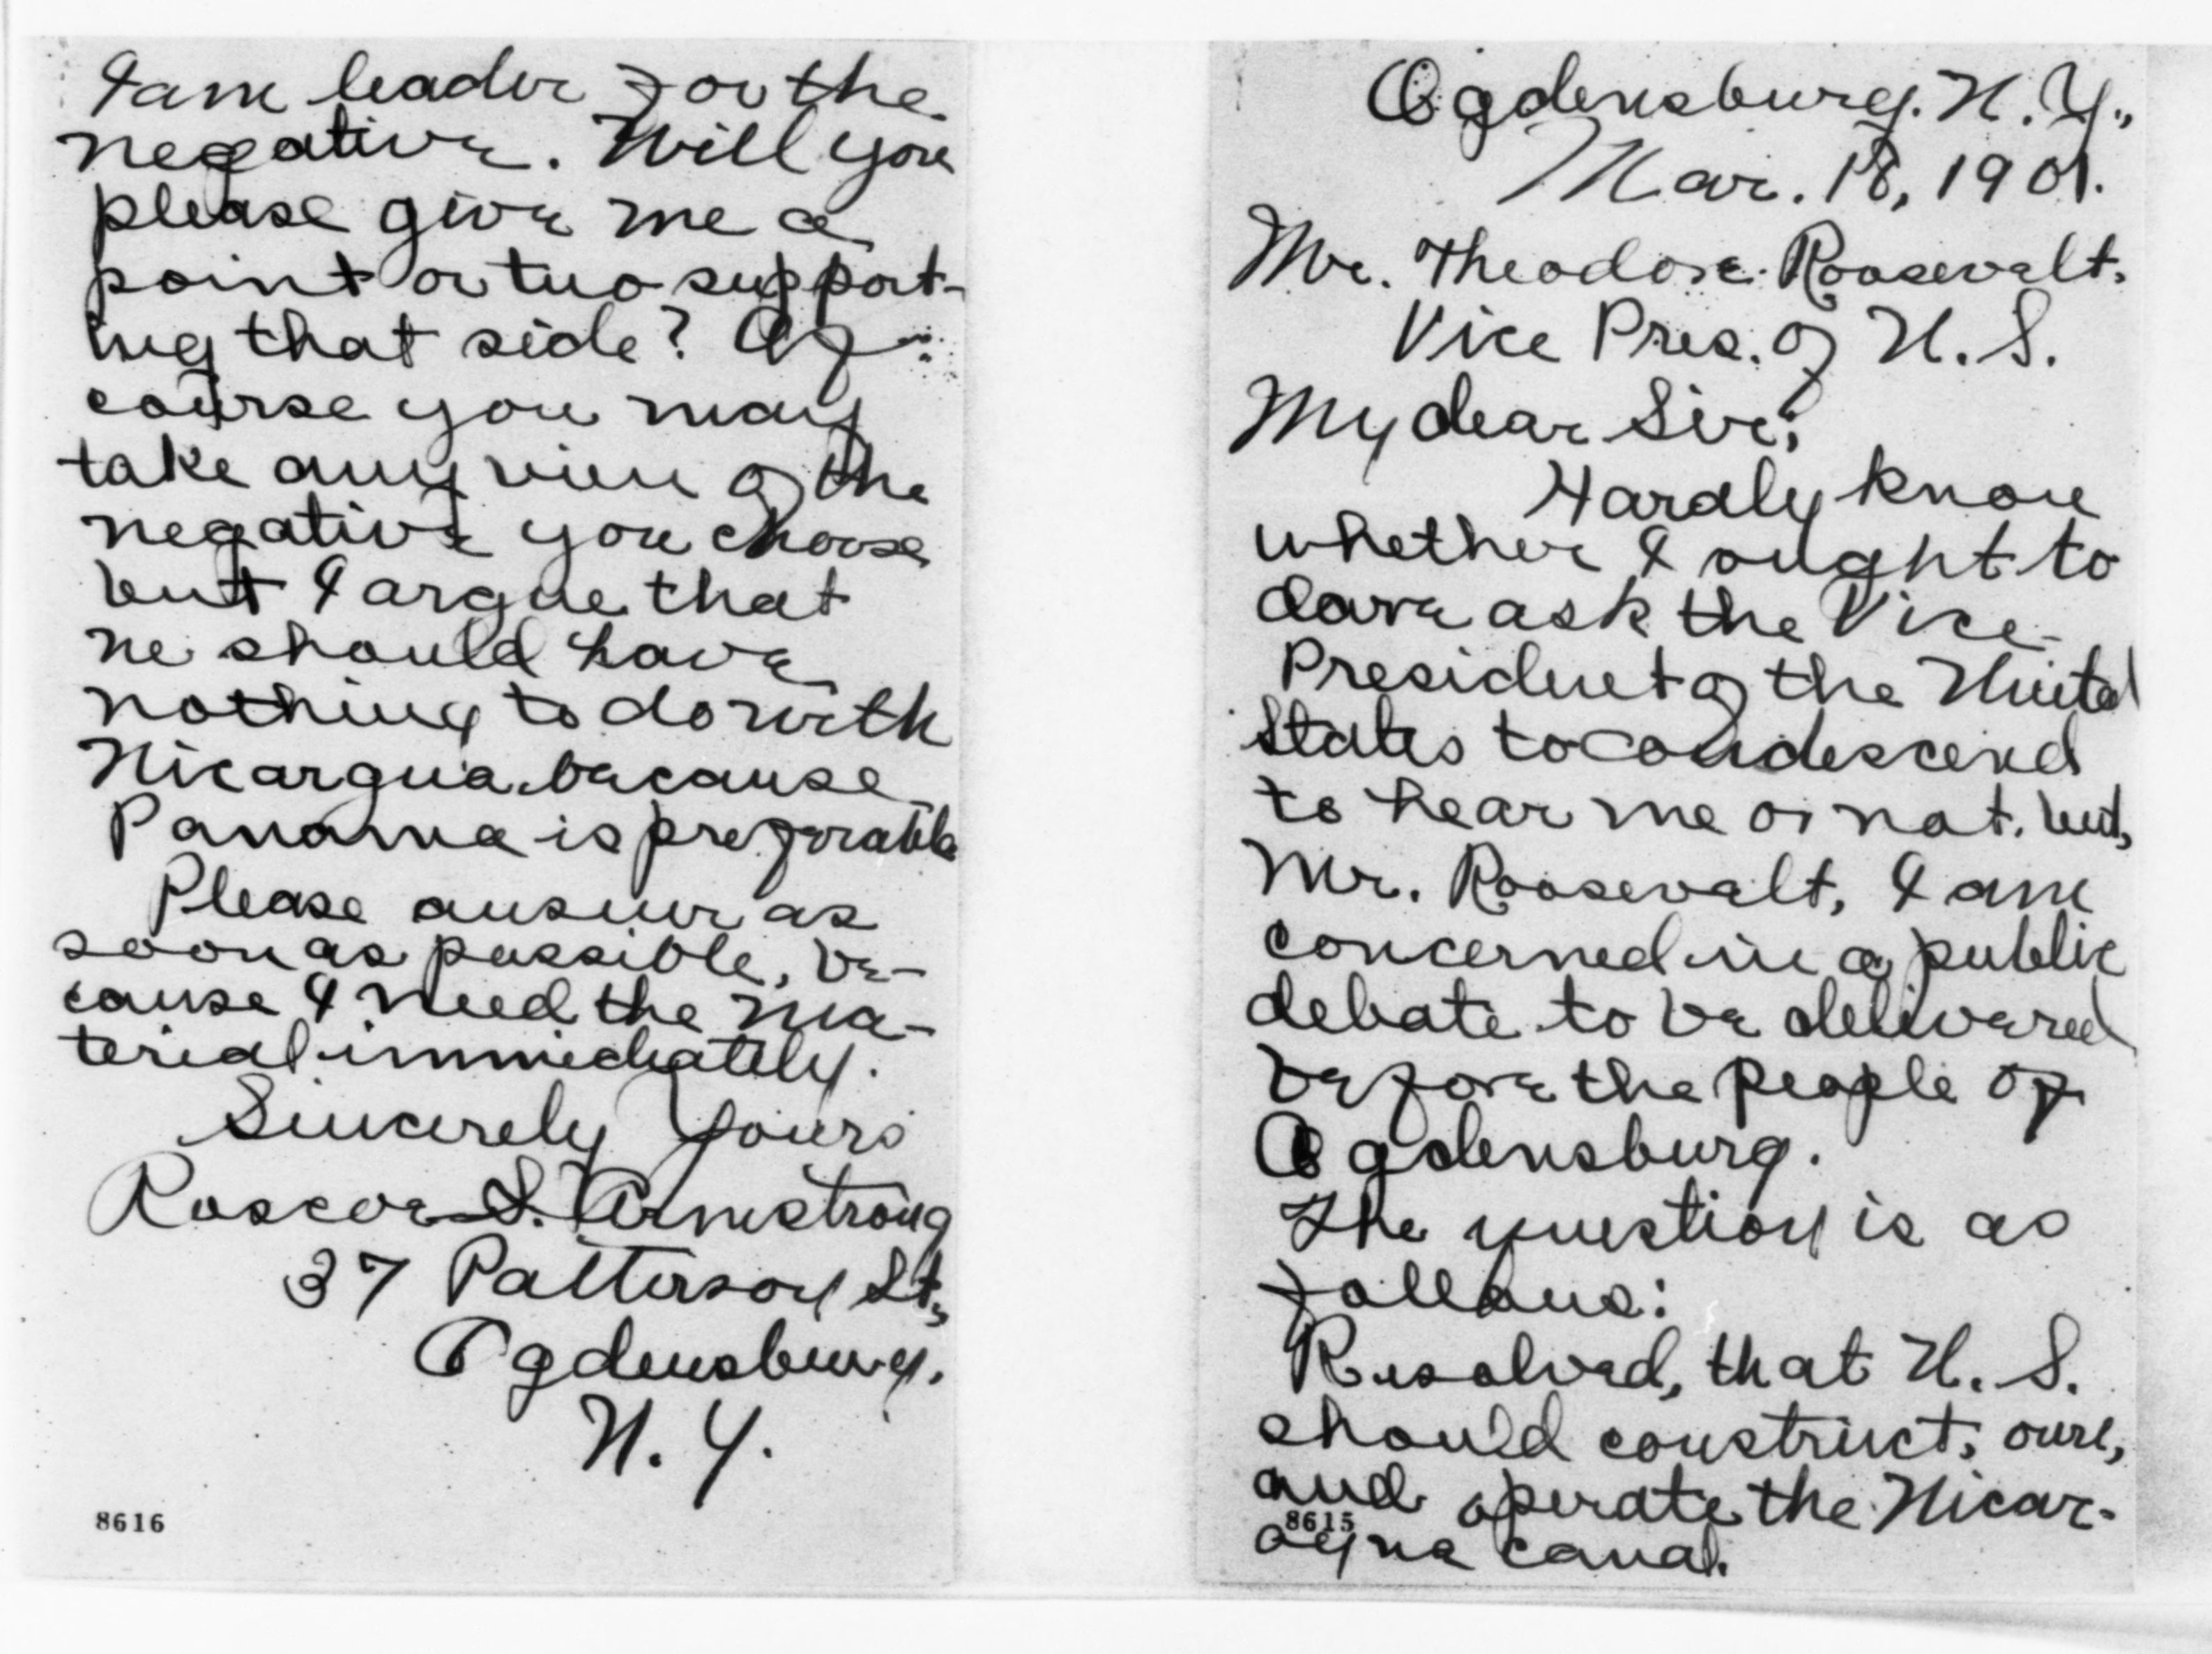 Ogdensburg. N. Y.,
Mar. 18, 1901.
Mr. Theodore Roosevelt.
Vice Pres. of U. S.
My dear Sir;
Hardly know
whether I ought to
dare ask the Vice-
President of the United
States to condescend
to hear me or not. but,
Mr. Roosevelt, I am
concerned in a public
debate to be delivered
before the people of
Ogdensburg.
The question is as
follows:
Resolved, that U. S.
should construct, own,
and operate the Nicar-
agua canal.
8615
I am leader for the
negative. Will you
please give me a
point or two support-
ing that side? Of
course you may
take any view of the
negative you choose
but I argue that
we should have
nothing to do with
Nicargua because
Panama is preferable
Please answer as
soon as possible, be-
cause I need the ma-
terial immediately.
Sincerely Yours
Roscoe S. Armstrong
37 Patterson St.,
Ogdensburg.
N. Y.
8616